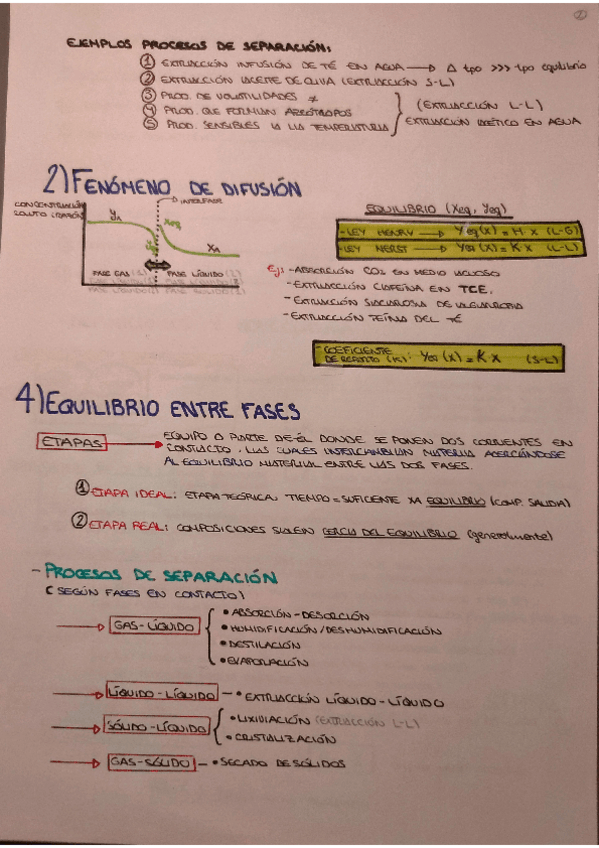 ②
EJEMPLOS PROCESOS DE SEPARACIÓN:
① EXTRACCIÓN INFUSIÓN DE TÉ EN AGUA → Δ tpo >>> tpo equilibrio
② EXTRACCIÓN ACEITE DE OLIVA (EXTRACCIÓN S-L)
③ PROD. DE VOLATILIDADES ≠
④ PROD. QUE FORMAN AZEÓTROPOS
⑤ PROD. SENSIBLES A LA TEMPERATURA
(EXTRACCIÓN L-L)
EXTRACCIÓN ACÉTICO EN AGUA
2) FENÓMENO DE DIFUSIÓN
CONCENTRACIÓN
SOLUTO
INTERFASE
yA
Xeq
XA
FASE GAS
FASE LÍQUIDO
EQUILIBRIO (Xeq, yeq)
-LEY HENRY → yeq(x) = H·x (L-G)
-LEY NERST → yeq(x) = K·x (L-L)
Ej: -ABSORCIÓN CO2 EN MEDIO ACUOSO
-EXTRACCIÓN CAFEÍNA EN TCE.
-EXTRACCIÓN SACAROSA DE
-EXTRACCIÓN TEÍNA DEL TÉ
-COEFICIENTE
DE REPARTO (K): yeq(x) = K x (S-L)
4) EQUILIBRIO ENTRE FASES
ETAPAS → EQUIPO O PARTE DE ÉL DONDE SE PONEN DOS CORRIENTES EN
CONTACTO, LAS CUALES INTERCAMBIAN MATERIA ACERCÁNDOSE
AL EQUILIBRIO MATERIAL ENTRE LAS DOS FASES.
① ETAPA IDEAL: ETAPA TEÓRICA, TIEMPO = SUFICENTE XA EQUILIBRIO (COMP. SALIDA)
② ETAPA REAL: COMPOSICIONES SALEN CERCA DEL EQUILIBRIO (generalmente)
- PROCESOS DE SEPARACIÓN
(SEGÚN FASES EN CONTACTO)
→ GAS-LÍQUIDO
• ABSORCIÓN-DESORCIÓN
• HUMIDIFICACIÓN/DESHUMIDIFICACIÓN
• DESTILACIÓN
• EVAPORACIÓN
→ LÍQUIDO-LÍQUIDO - • EXTRACCIÓN LÍQUIDO-LÍQUIDO
→ SÓLIDO-LÍQUIDO
• LIXIVIACIÓN (EXTRACCIÓN L-L)
• CRISTALIZACIÓN
→ GAS-SÓLIDO - • SECADO DE SÓLIDOS